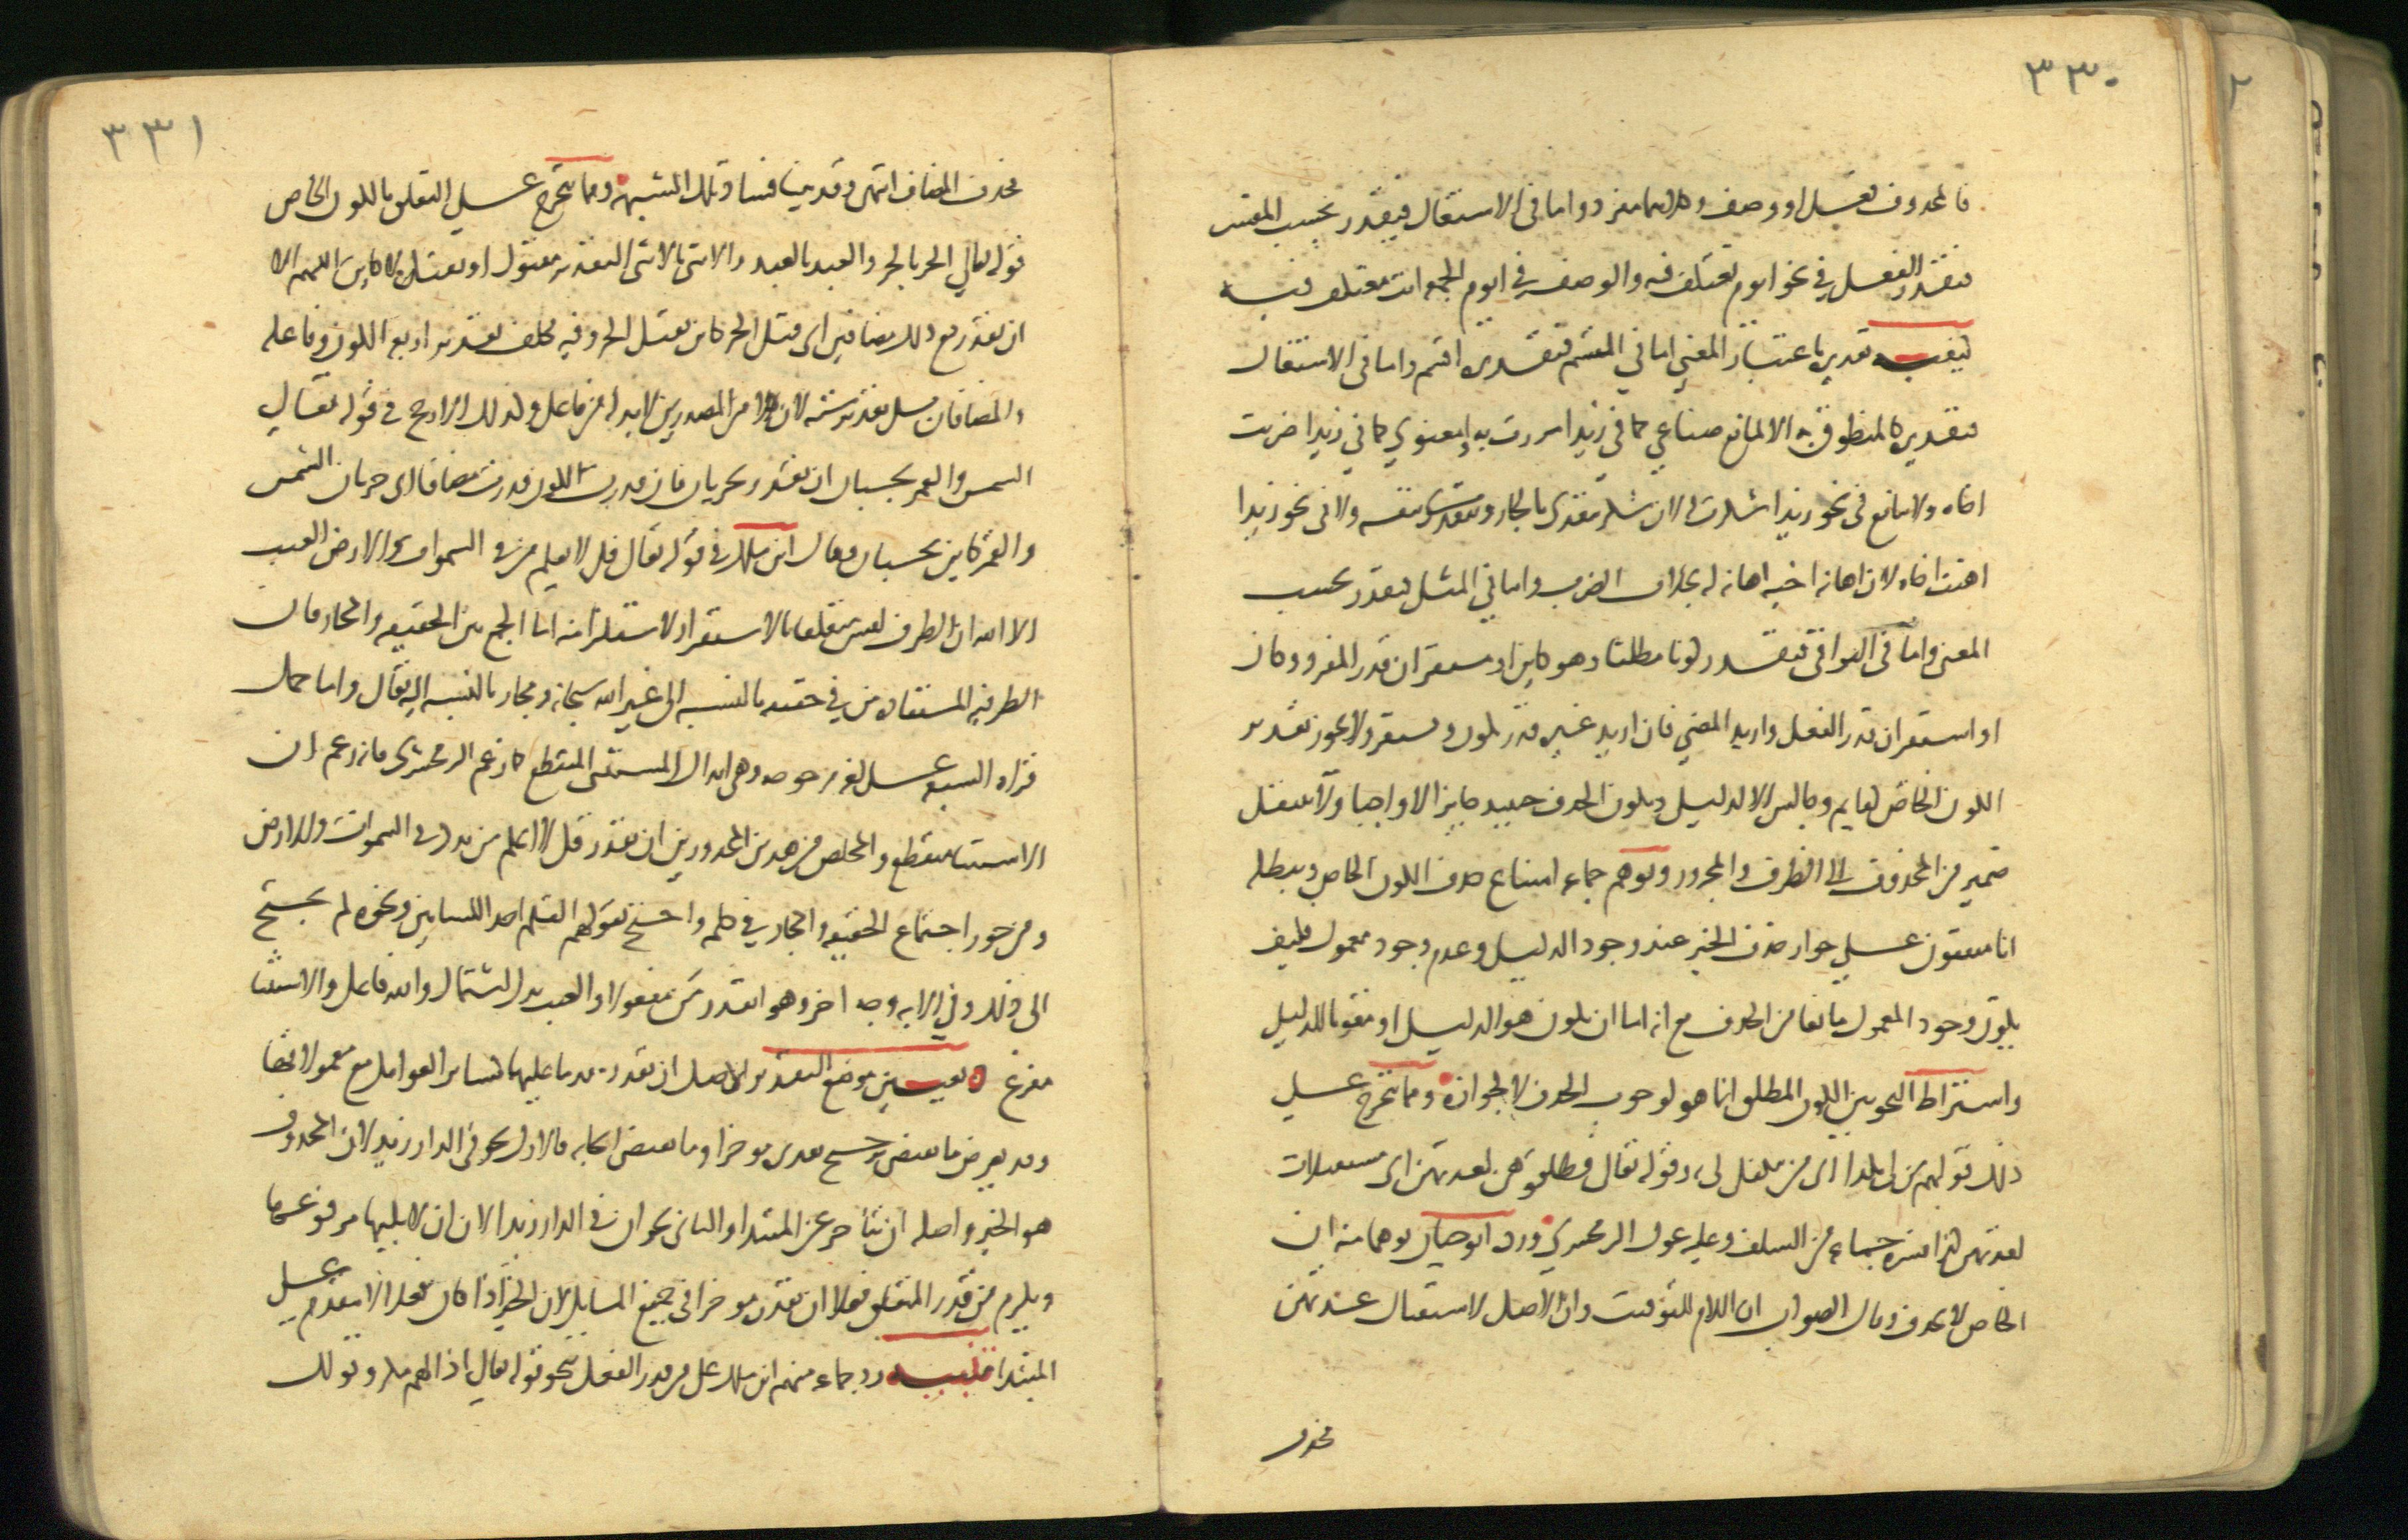 ٣٣٠
فالمحذوف فعل او وصف وكلاهما مفرد واما في الاشتغال فيقدر بحسب المفسر
فيقدر الفعل في نحو ايوم تعتكف فيه والوصف في ايوم الجمعه انت معتكف فيه
كيفيه تقديره باعتبار المعني اما في القسم فتقديره اقسم واما في الاشتغال
فتقديره كالمنطوق به الا لمانع صناعي كما في زيدا مررت به او معنوي كما في زيدا ضربت
اخاه ولا مانع في نحو زيدا شكرت له لان شكر يتعدى بالجار وبنفسه ولا في نحو زيدا
اهنت اخاه لان اهانه اخيه اهانه له بخلاف الضرب واما في المثل فيقدر بحسب
المعنى واما في البواقي فيقدر كونا مطلقا وهو كاين او مستقر ان قدر المفرد وكان
او استقر ان قدر الفعل واريد المضي فان اريد غيره قدر يكون ويستقر ولا يجوز تقدير
الكون الخاص كقايم وجالس الا لدليل ويكون الحذف حينيذ جايزا لا واجبا ولا ينتقل
ضمير من المحذوف الى الظرف والمجرور وتوهم جماعه امتناع حذف الكون الخاص ويبطله
انا متفقون علي جواز حذف الخبر عند وجود الدليل وعدم وجود معمول فكيف
يكون وجود المعمول مانعا من الحذف مع انه اما ان يكون هو الدليل او مقويا للدليل
واشتراط النحويين الكون المطلق انما هو لوجوب الحذف لا لجوازه ومما يتخرج علي
ذلك قولهم من لي بكذا اى من يتكفل لي وقوله تعالى فطلقوهن لعدتهن اى مستقبلات
لعدتهن كذا فسره جماعه من السلف وعليه عول الزمخشري ورده ابو حيان توهما منه ان
الخاص لا يحذف وقال الصواب ان اللام للتوقيت وان الاصل لاستقبال عدتهن
فحذف
٣٣١
فحذف المضاف انتهى وقد بينا فساد تلك الشبهه ومما يتخرج علي التعلق بالكون الخاص
قوله تعالي الحر بالحر والعبد بالعبد والانثى بالانثى التقدير مقتول او يقتل لا كاين اللهم الا
ان تقدر مع ذلك مضافين اى قتل الحر كاين بقتل الحر وفيه تكلف تقدير اربعه الكون وفاعله
والمضافان بل تقدير سته لان كلا من المصدرين لابد له من فاعل وكذلك الارجح في قوله تعالي
الشمس والقمر بحسبان ان يقدر يجريان فان قدرت الكون قدرت مضافا اى جريان الشمس
والقمر كاين بحسبان وقال ابن مالك في قوله تعالى قل لا يعلم من في السموات والارض الغيب
الا الله ان الظرف ليس متعلقا بالاستقرار لاستلزامه اما الجمع بين الحقيقه والمجاز فان
الظرفيه المستفاده من في حقيقه بالنسبه الى غير الله سبحانه ومجاز بالنسبه اليه تعالى واما حمل
قراه السبعه علي لغه مرجوحه وهي ابدال المستثنى المنقطع كما زعم الزمخشرى فانه زعم ان
الاستثنا منقطع والمخلص من هذين المحذورين ان يقدر قل لا يعلم من يذكر في السموات والارض
ومن جوز اجتماع الحقيقه والمجاز في كلمه واحتج بقولهم القلم احد اللسانين ونحوه لم يحتج
الى ذلك وفي الايه وجه اخر وهو ان يقدر من مفعولا والغيب بدل اشتمال والله فاعل والاستثنا
مفرغ تعيين موضع التقدير الاصل ان يقدر مقدما عليهما كساير العوامل مع معمولاتها
وقد يعرض ما يقتضي ترجيح تقديره موخرا وما يقتضي ايجابه فالاول نحو في الدار زيد لان المحذوف
هو الخبر واصله ان يتاخر عن المبتدا والثانى نحو ان في الدار زيدا لان ان لا يليها مرفوعها
ويلزم من قدر المتعلق فعلا ان يقدره موخرا في جميع المسايل لان الخبر اذا كان فعلا لا يتقدم علي
المبتدا تنبيه رد جماعه منهم ابن مالك على من قدر الفعل بنحو قوله تعالي اذا لهم مكر وقولك